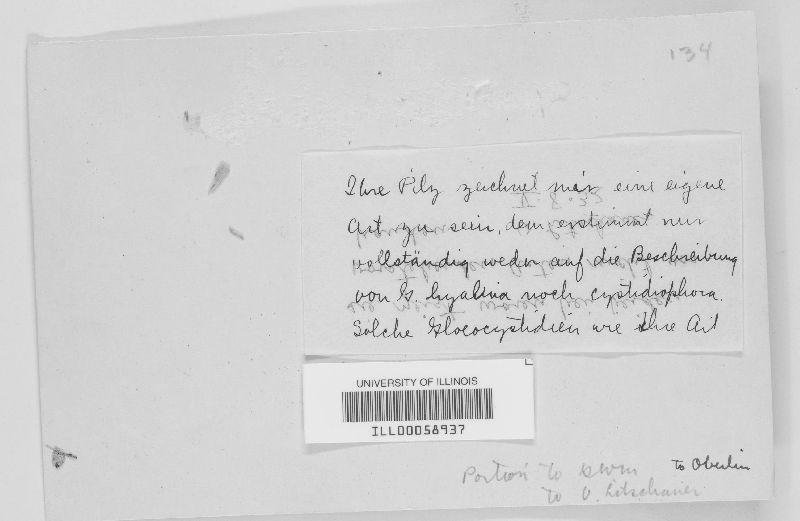 134
Ihre Pilz zeichnet mir eine eigene
Art zu sein, denn er stimmt nur
vollständig weder auf die Beschreibung
von G. hyalina noch cystidiophora.
Solche Gloeocystidien wie Ihre Art
UNIVERSITY OF ILLINOIS
ILL00058937
Portion to GWM
to Oberlin
to V. Litschauer